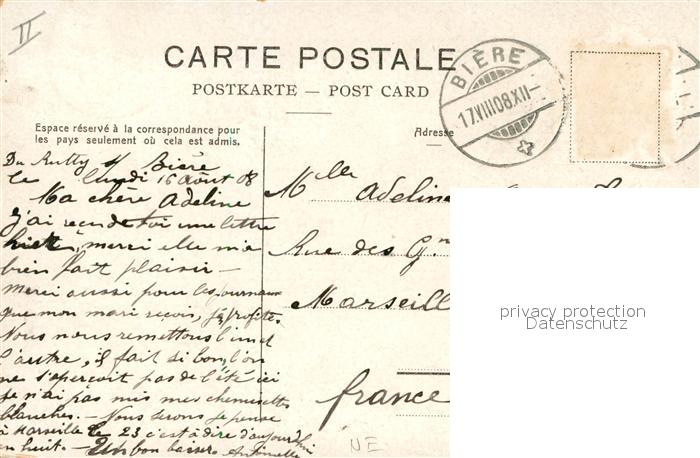 II
CARTE POSTALE
POSTKARTE — POST CARD
BIÈRE
17.VIII 08.XII-
Espace réservé à la correspondance pour
les pays seulement où cela est admis.
Adresse
Du Rutty s/ Bière
le lundi 16 août 08
Ma chère Adeline
j'ai reçu de toi une lettre
hier, merci elle m'a
bien fait plaisir —
merci aussi pour les journaux
que mon mari reçoit, j'en profite.
Nous nous remettons l'un et
l'autre, il fait si bon, l'on
ne s'aperçoit pas de l'été ici
je n'ai pas mis mes chemisettes
blanches. — Nous serons je pense
à Marseille le 23 c'est à dire d'aujourd'hui
en huit. — Un bon baiser Antoinette
Mlle Adeline
Rue des G
Marseill
france
NE
privacy protection
Datenschutz